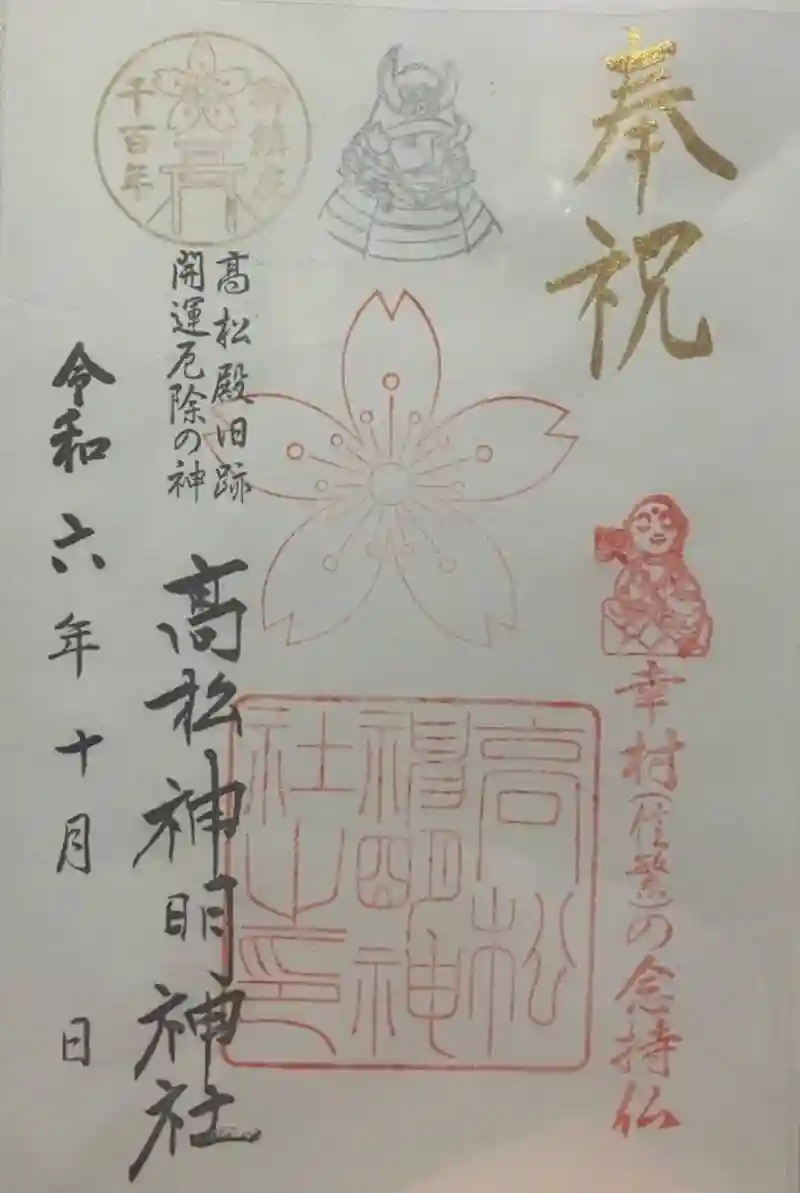 奉祝
幸村(信繁)の念持仏
御鎮座
千百年
高松殿旧跡
開運厄除の神
高松神明神社
高松
神明神
社之印
令和六年十月 日